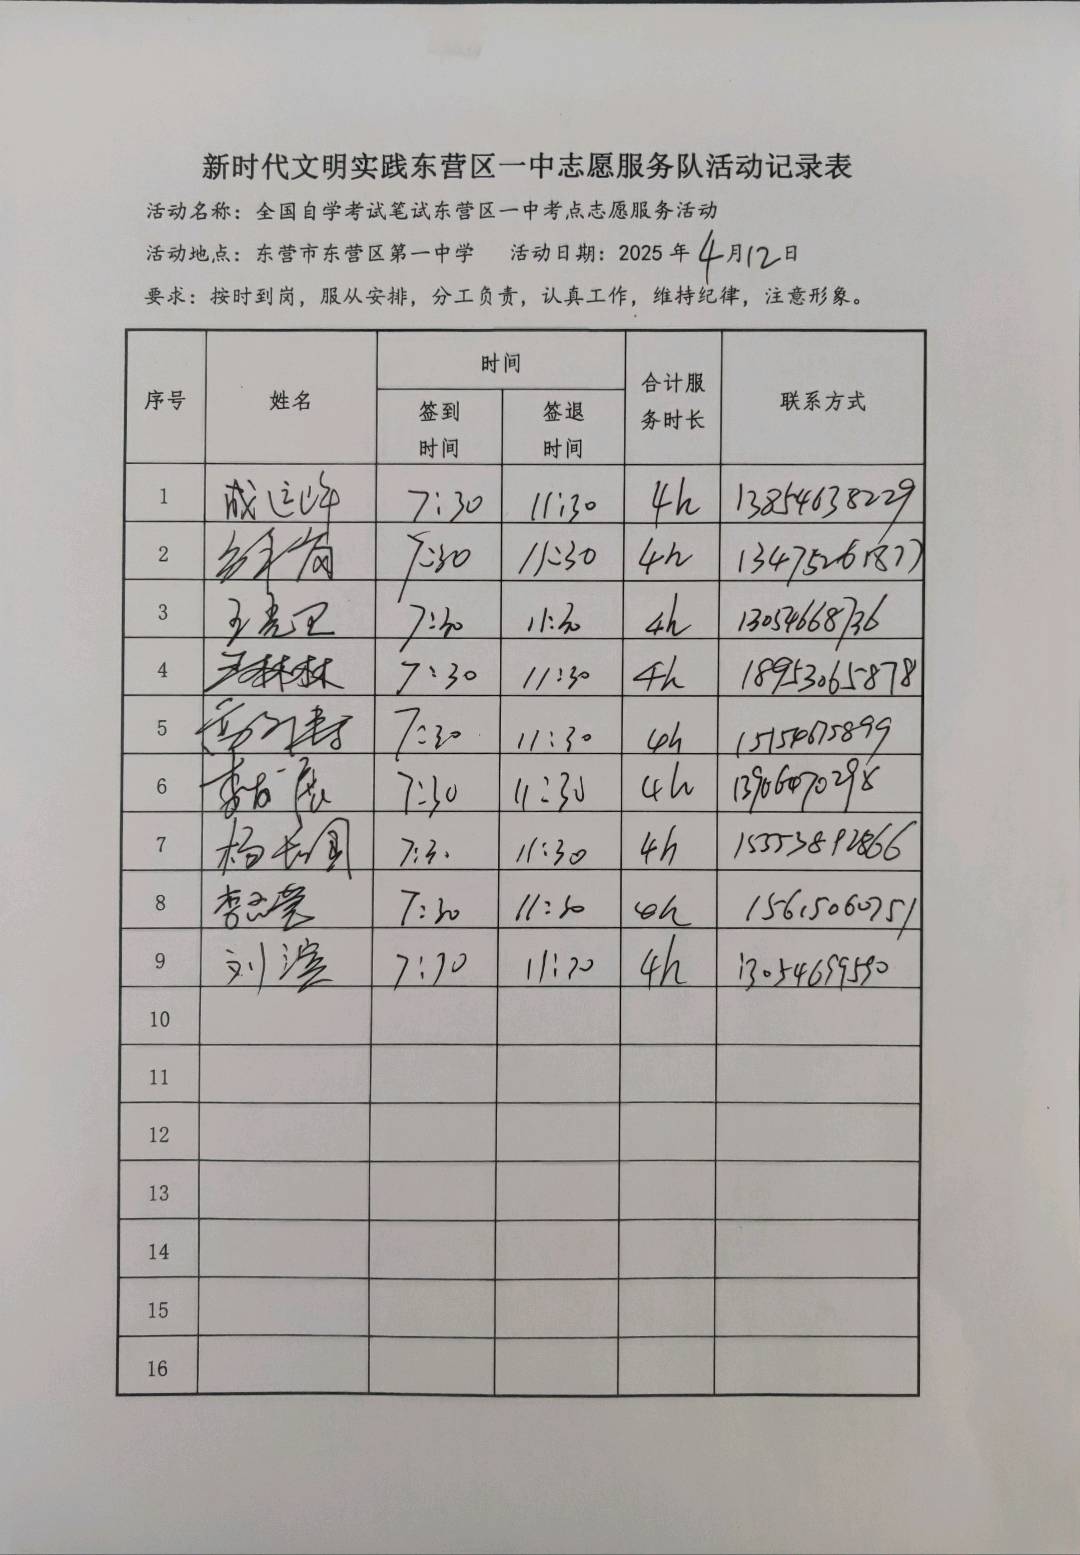 新时代文明实践东营区一中志愿服务队活动记录表
活动名称：全国自学考试笔试东营区一中考点志愿服务活动
活动地点：东营市东营区第一中学 活动日期：2025 年 4 月 12 日
要求：按时到岗，服从安排，分工负责，认真工作，维持纪律，注意形象。
序号 姓名 时间 合计服务时长 联系方式
签到时间 签退时间
1 7:30 11:30 4h 13854638229
2 7:30 11:30 4h 13475261877
3 王亮卫 7:30 11:30 4h 13054668736
4 王林林 7:30 11:30 4h 18953065878
5 7:30 11:30 4h 15154675899
6 李发展 7:30 11:30 4h
7 杨长国 7:30 11:30 4h 15553892866
8 7:30 11:30 4h 15615060751
9 刘滨 7:30 11:30 4h 13054699590
10
11
12
13
14
15
16